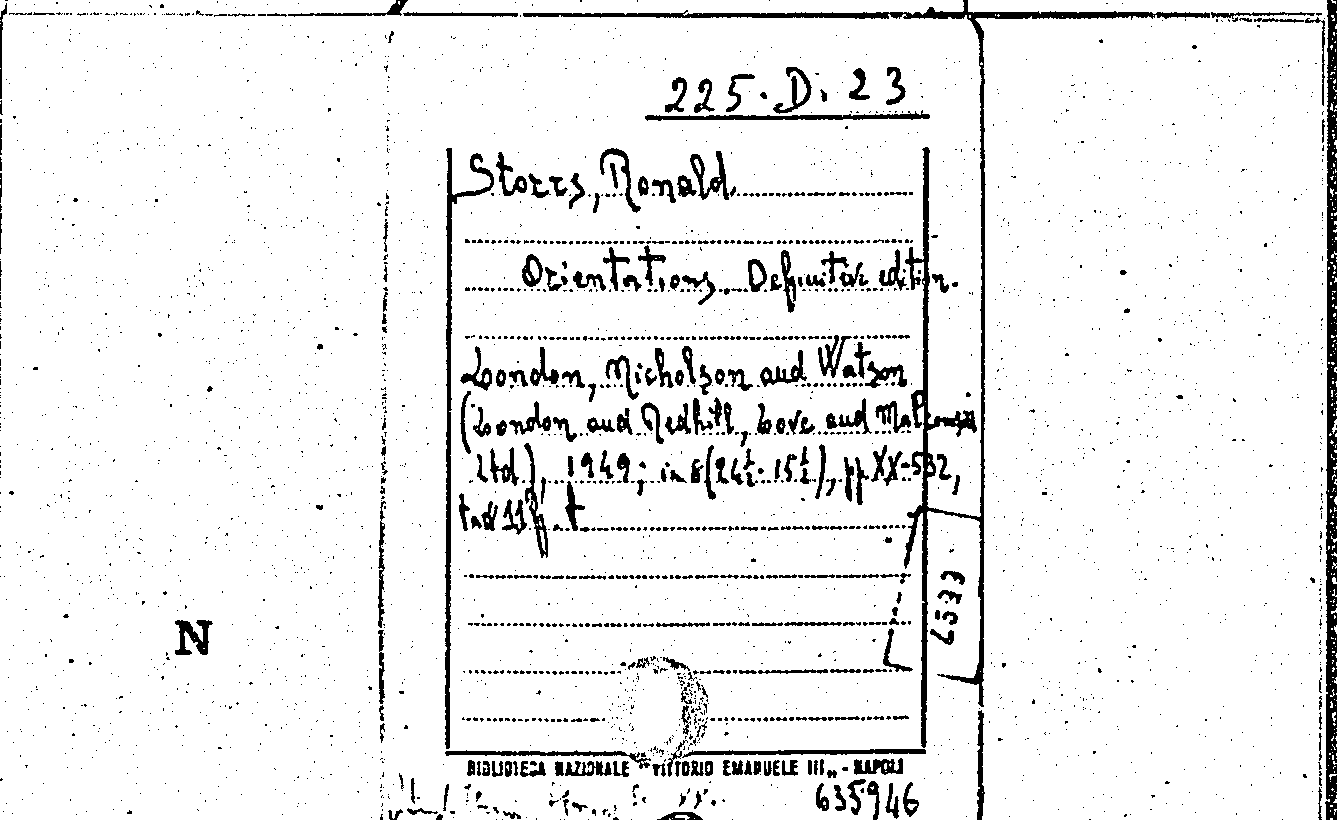 225. D. 23
Storrs, Ronald.
Orientations. Definitive edition.
London, Nicholson and Watson
(London and Redhill, Love and Malcomson
Ltd), 1949; in 8 (24½. 15½), pp XX-532,
N
BIBLIOTECA NAZIONALE "VITTORIO EMANUELE III„ - NAPOLI
635946